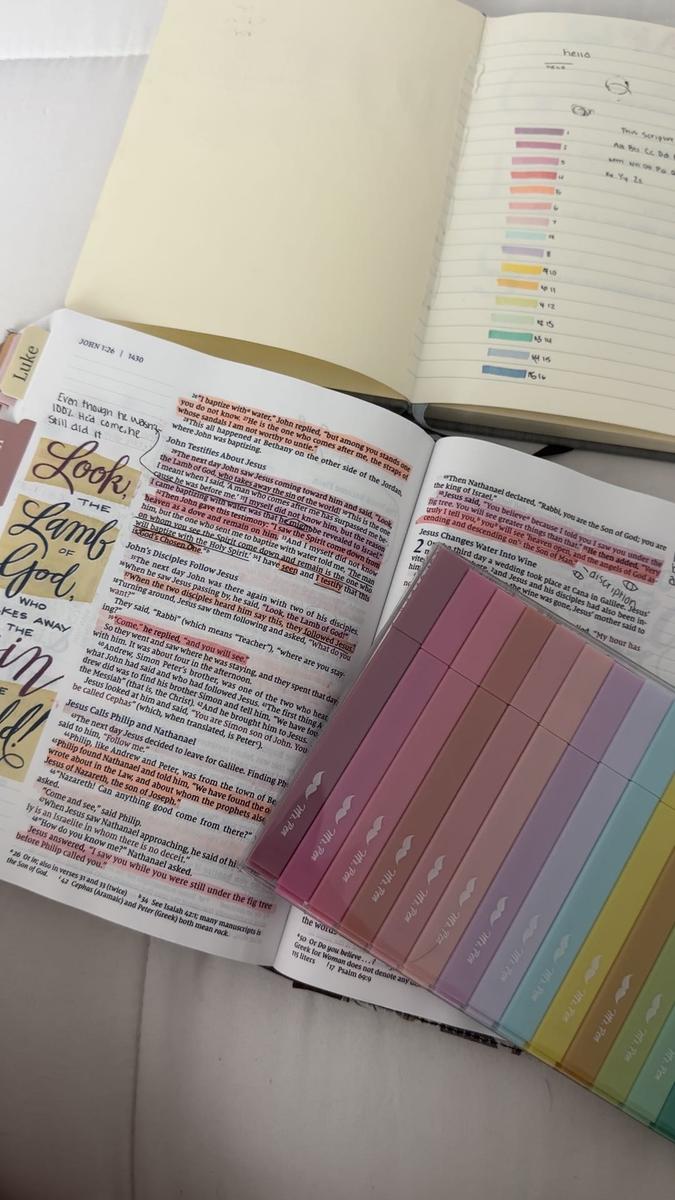 hello
HELLO
1
This Scriptur
2
Aa Bb Cc Dd
3
4
5
6
7
8
#10
# 11
# 12
# 13
#14
#15
#16
Luke
JOHN 1:26 | 1430
Even though he wasn't
100% He'd come, he
Still did it
Look,
THE
Lamb
OF
God,
WHO
KES AWAY
THE
in
ld!
26 "I baptize with water," John replied, "but among you stands one
you do not know. 27 He is the one who comes after me, the straps of
whose sandals I am not worthy to untie."
28 This all happened at Bethany on the other side of the Jordan,
where John was baptizing.
John Testifies About Jesus
29 The next day John saw Jesus coming toward him and said, "Look,
the Lamb of God, who takes away the sin of the world! 30 This is the one
I meant when I said, 'A man who comes after me has surpassed me be-
cause he was before me.' 31 I myself did not know him, but the reason I
came baptizing with water was that he might be revealed to Israel."
32 Then John gave this testimony: "I saw the Spirit come down from
heaven as a dove and remain on him. 33 And I myself did not know
him, but the one who sent me to baptize with water told me, 'The man
on whom you see the Spirit come down and remain is the one who
will baptize with the Holy Spirit.' 34 I have seen and I testify that this
is God's Chosen One."
John's Disciples Follow Jesus
35 The next day John was there again with two of his disciples.
36 When he saw Jesus passing by, he said, "Look, the Lamb of God!"
37 When the two disciples heard him say this, they followed Jesus.
38 Turning around, Jesus saw them following and asked, "What do you
want?"
They said, "Rabbi" (which means "Teacher"), "where are you stay-
39 "Come," he replied, "and you will see."
So they went and saw where he was staying, and they spent that day
with him. It was about four in the afternoon.
40 Andrew, Simon Peter's brother, was one of the two who hea
what John had said and who had followed Jesus. 41 The first thing A
drew did was to find his brother Simon and tell him, "We have fou
the Messiah" (that is, the Christ). 42 And he brought him to Jesus.
Jesus looked at him and said, "You are Simon son of John. You
be called Cephas" (which, when translated, is Peter).
Jesus Calls Philip and Nathanael
43 The next day Jesus decided to leave for Galilee. Finding Ph
said to him, "Follow me."
44 Philip, like Andrew and Peter, was from the town of Be
45 Philip found Nathanael and told him, "We have found the o
wrote about in the Law, and about whom the prophets also
Jesus of Nazareth, the son of Joseph."
46 "Nazareth! Can anything good come from there?"
asked.
"Come and see," said Philip.
47 When Jesus saw Nathanael approaching, he said of hi
ly is an Israelite in whom there is no deceit."
48 "How do you know me?" Nathanael asked.
Jesus answered, "I saw you while you were still under the fig tree
before Philip called you."
26 Or in; also in verses 31 and 33 (twice) 34 See Isaiah 42:1; many manuscripts is
the Son of God. 42 Cephas (Aramaic) and Peter (Greek) both mean rock.
49 Then Nathanael declared, "Rabbi, you are the Son of God; you are
the king of Israel."
50 Jesus said, "You believe because I told you I saw you under the
fig tree. You will see greater things than that." 51 He then added, "Very
truly I tell you, you will see 'heaven open, and the angels of God as-
cending and descending on' the Son of Man."
description
Jesus Changes Water Into Wine
2 On the third day a wedding took place at Cana in Galilee. Jesus'
2 and Jesus and his disciples had also been in-
the wine was gone, Jesus' mother said to
"My hour has
the words
50 Or Do you believe . . . ?
Greek for Woman does not denote any
115 liters 17 Psalm 69:9
Mr. Pen
Mr. Pen
Mr. Pen
Mr. Pen
Mr. Pen
Mr. Pen
Mr. Pen
Mr. Pen
Mr. Pen
Mr. Pen
Mr. Pen
Mr. Pen